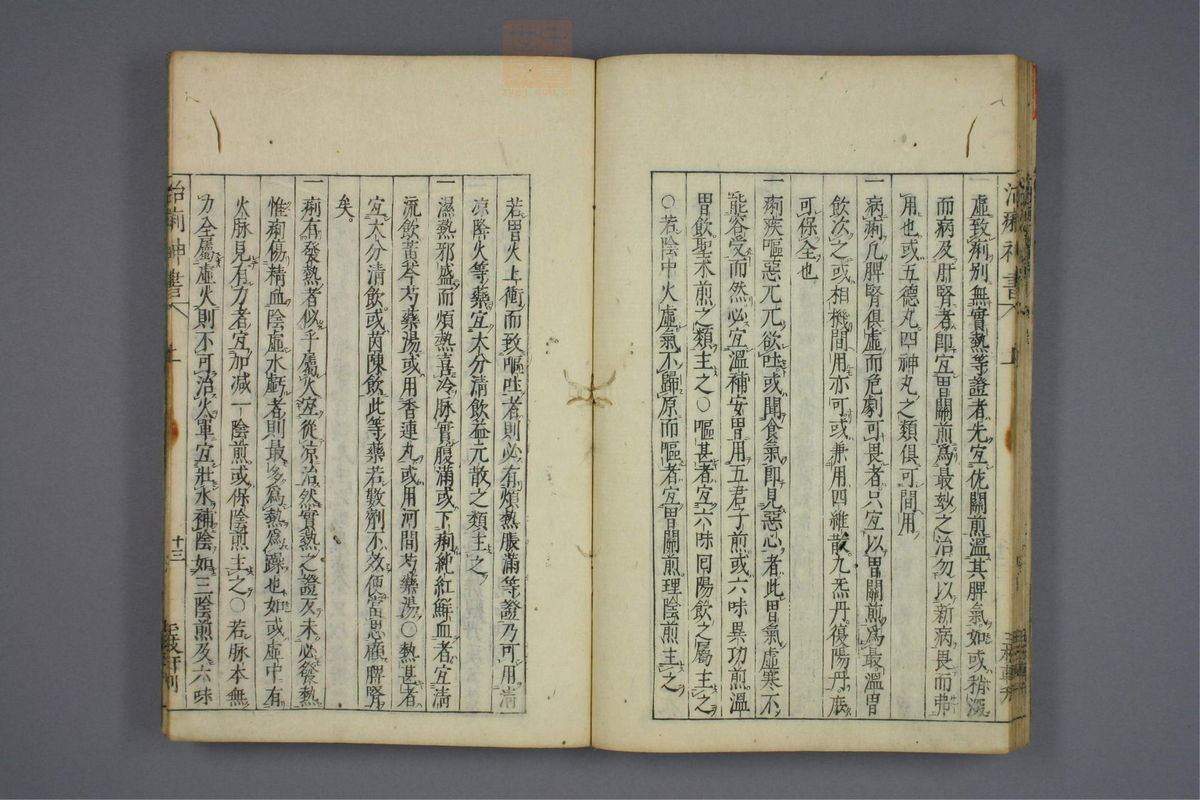 一虛致痢別無實熱等證者先宜佐關煎溫其脾氣如或稍深
而病及肝腎者即宜胃關煎爲最妙之治勿以新病畏而弗
用也或五德丸四神丸之類俱可間用
一病痢凡脾腎俱虛而危劇可畏者只宜以胃關煎爲最溫胃
飲次之或相機間用亦可或兼用四維散九炁丹復陽丹庶
可保全也
一痢疾嘔惡兀兀欲吐或聞食氣即見惡心者此胃氣虛寒不
能容受而然必宜溫補安胃用五君子煎或六味異功煎溫
胃飲聖朮煎之類主之○嘔甚者宜六味回陽飲之屬主之
○若陰中火虛氣不歸原而嘔者宜胃關煎理陰煎主之
若胃火上衝而致嘔吐者則必有煩熱脹滿等證乃可用清
凉降火等藥宜大分清飲益元散之類主之
一濕熱邪盛而煩熱喜冷脉實腹滿或下痢純紅鮮血者宜清
流飲黃芩芍藥湯或用香連丸或用河間芍藥湯○熱甚者
宜大分清飲或茵陳飲此等藥若數劑不效便當思顧脾腎
矣
一痢有發熱者似乎屬火宜從凉治然實熱之證反未必發熱
惟痢傷精血陰虛水虧者則最多爲熱爲躁也如或虛中有
火脉見有力者宜加减一陰煎或保陰煎主之○若脉本無
力全屬虛火則不可治火單宜壯水補陰如三陰煎及六味
治痢神書
上
十三